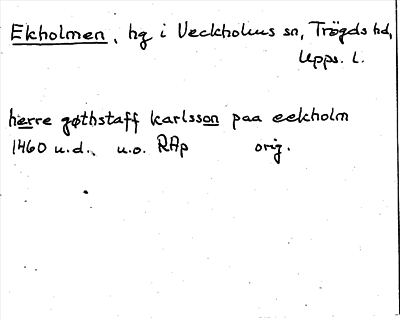 Ekholmen, hg i Veckholms sn, Trögds hd,
Upps. l.
herre gøthstaff karlsson paa eekholm
1460 u.d. u.o. RAp orig.